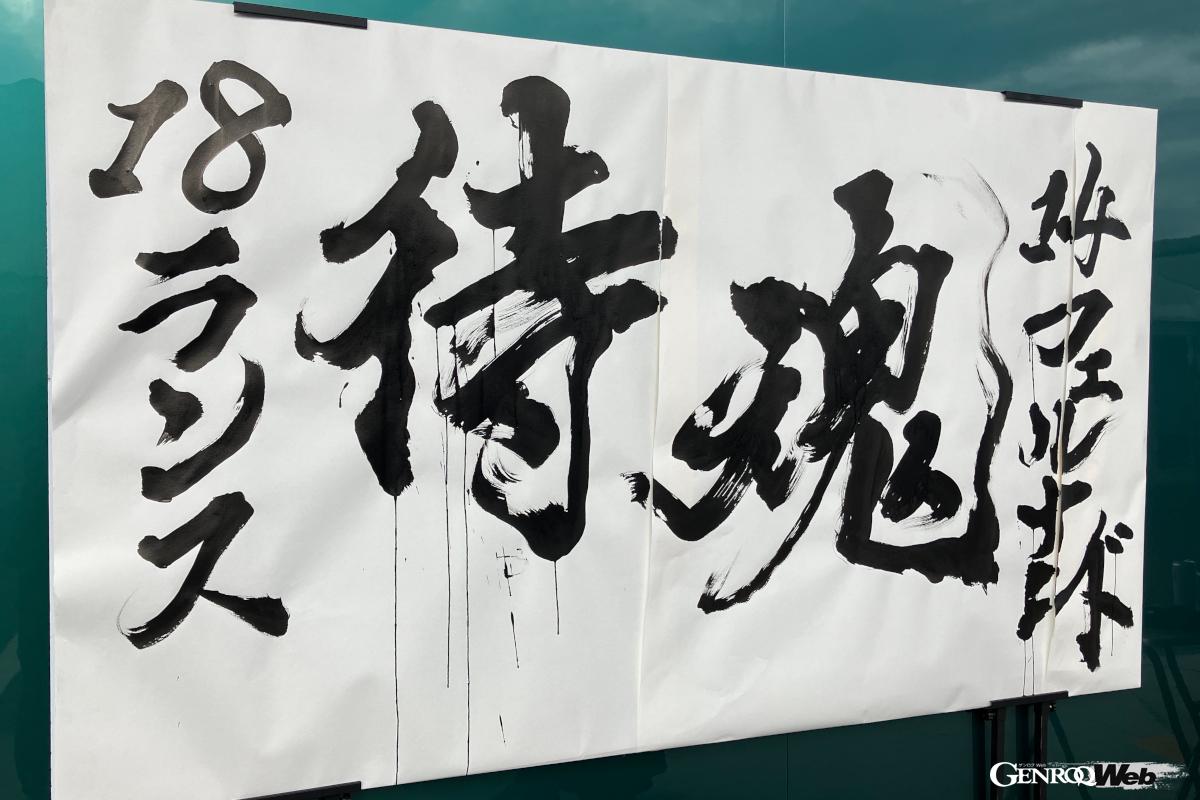 18
ランス
待魂
14
フェルナンド
ゲンロク Web
GENROQ Web